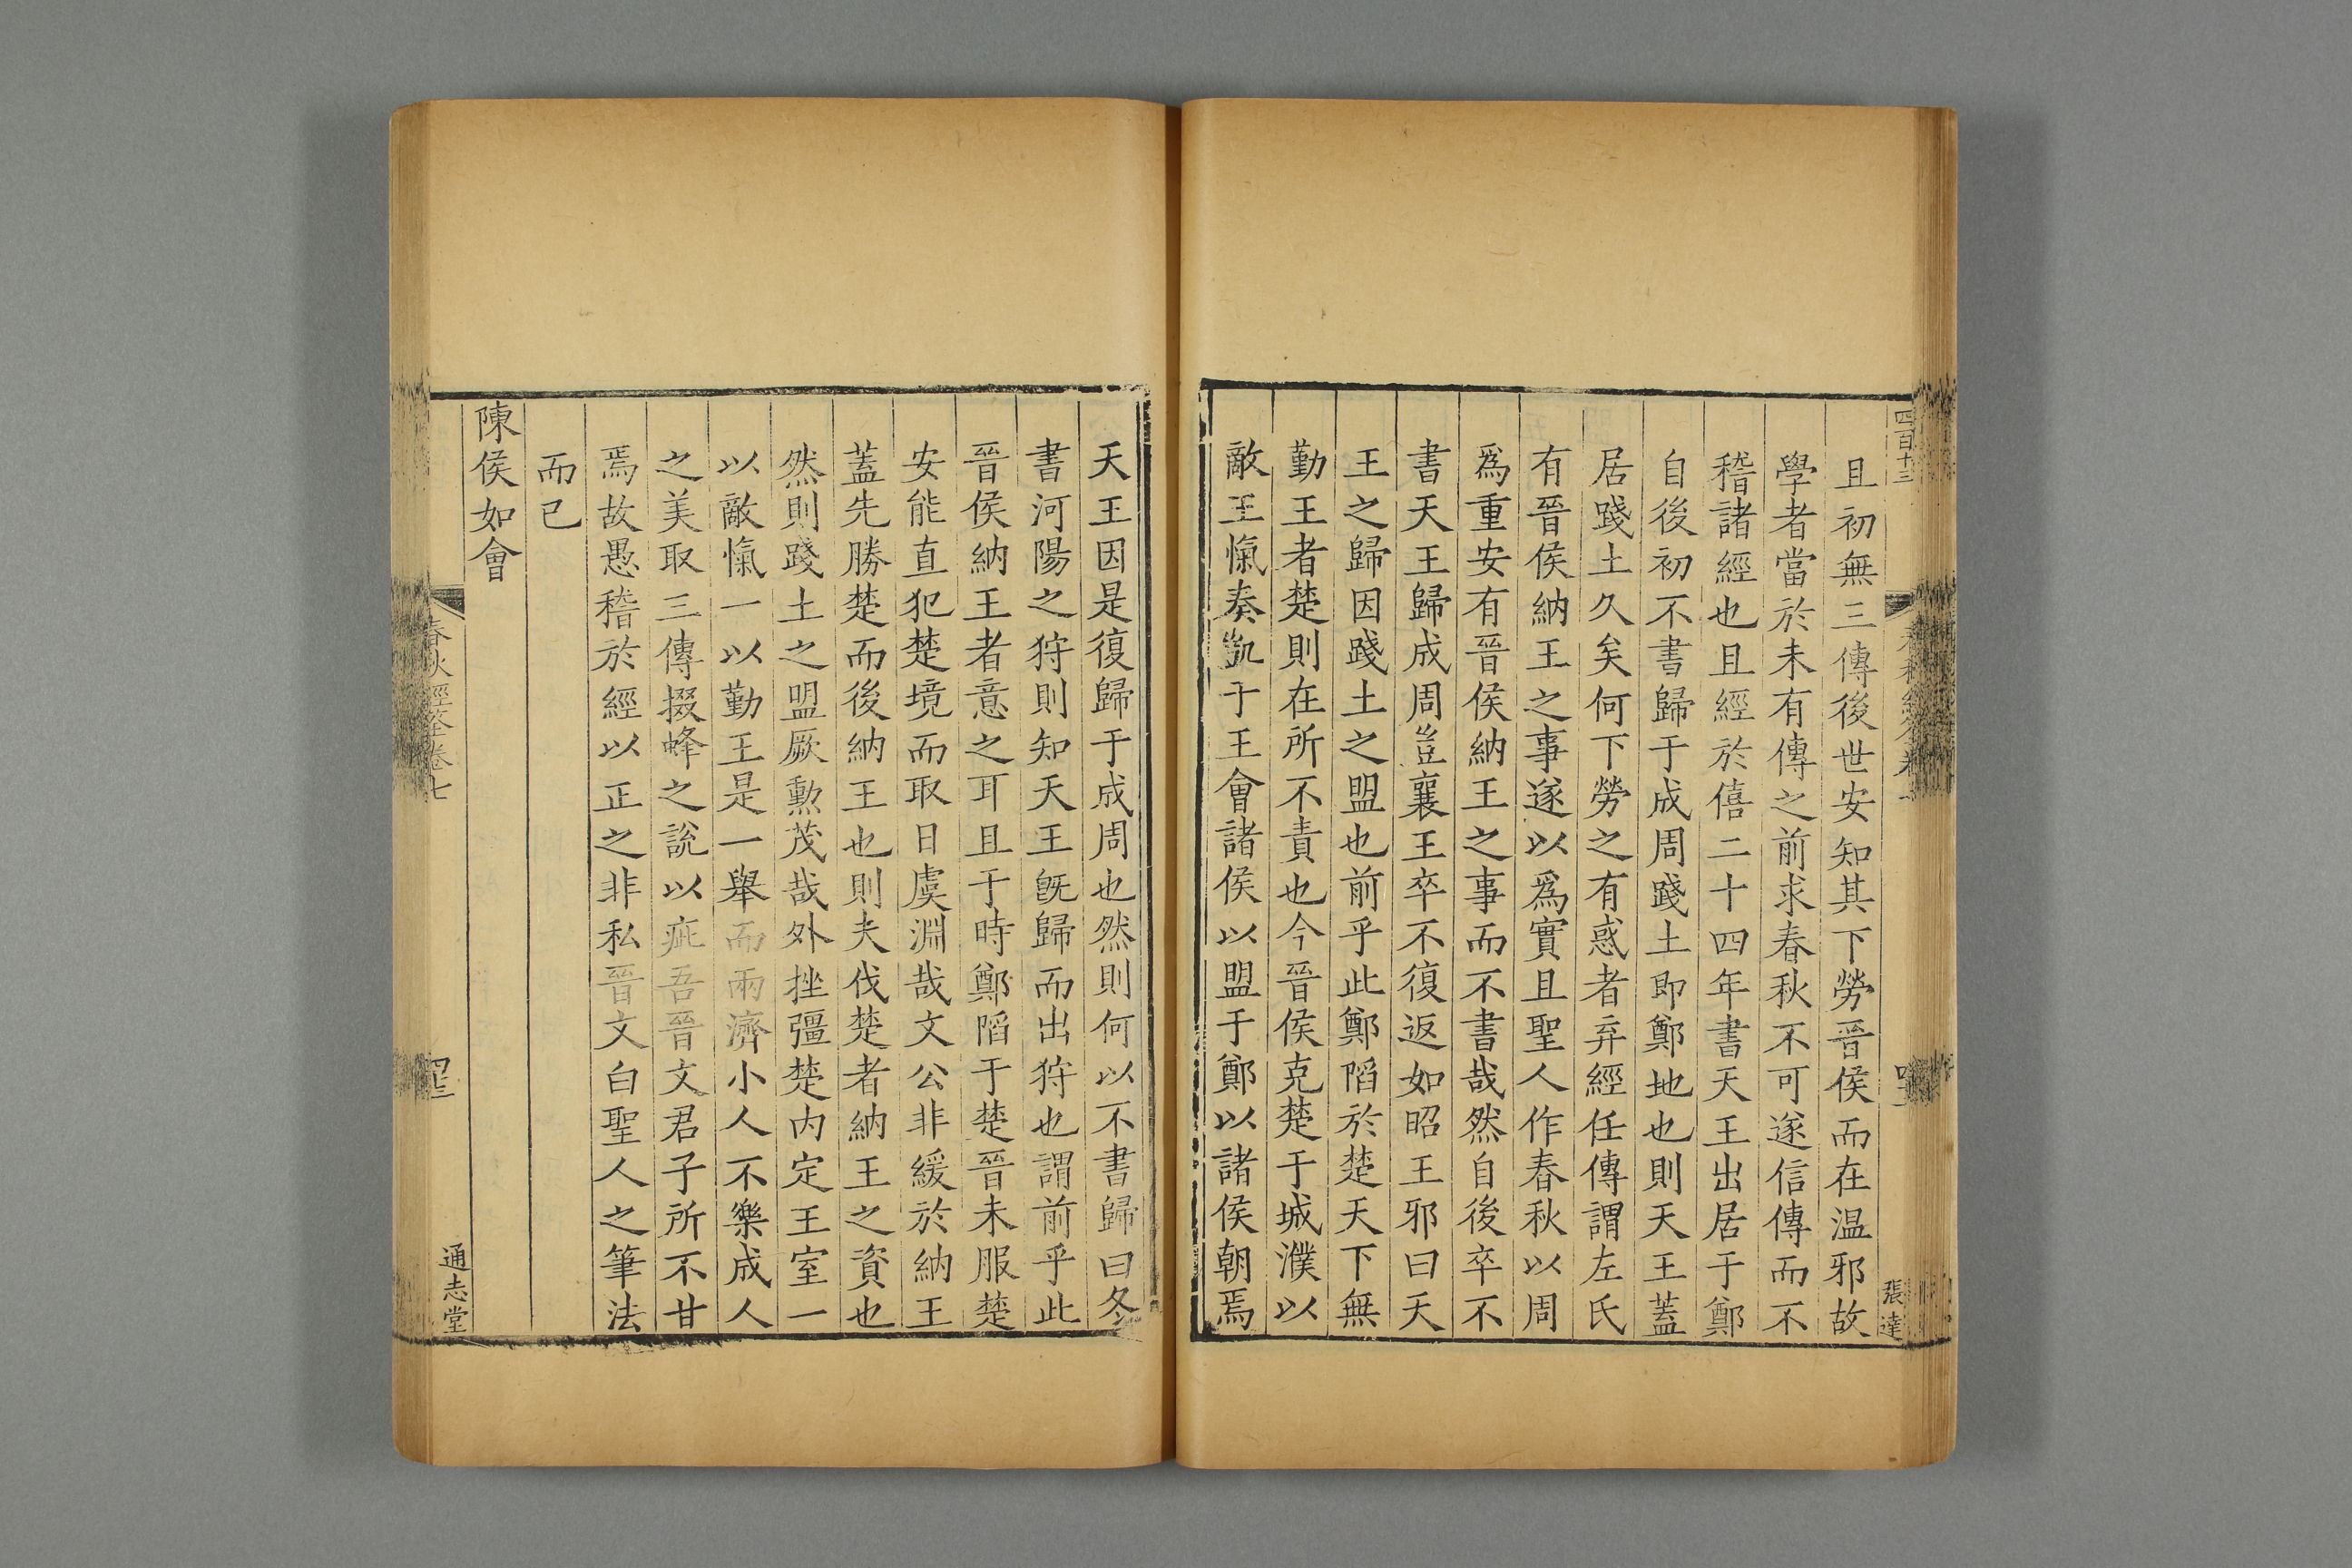 四百十三
張達
且初無三傳後世安知其下勞晉侯而在温邪故
學者當於未有傳之前求春秋不可遂信傳而不
稽諸經也且經於僖二十四年書天王出居于鄭
自後初不書歸于成周踐土即鄭地也則天王蓋
居踐土久矣何下勞之有惑者弃經任傳謂左氏
有晉侯納王之事遂以爲實且聖人作春秋以周
爲重安有晉侯納王之事而不書哉然自後卒不
書天王歸成周豈襄王卒不復返如昭王邪曰天
王之歸因踐土之盟也前乎此鄭䧟於楚天下無
勤王者楚則在所不責也今晉侯克楚于城濮以
敵王愾奏凱于王會諸侯以盟于鄭以諸侯朝焉
天王因是復歸于成周也然則何以不書歸曰冬
書河陽之狩則知天王旣歸而出狩也謂前乎此
晉侯納王者意之耳且于時鄭䧟于楚晉未服楚
安能直犯楚境而取日虞淵哉文公非緩於納王
蓋先勝楚而後納王也則夫伐楚者納王之資也
然則踐土之盟厥勲茂哉外挫彊楚内定王室一
以敵愾一以勤王是一舉而兩濟小人不樂成人
之美取三傳掇蜂之說以疵吾晉文君子所不甘
焉故愚稽於經以正之非私晉文白聖人之筆法
而已
陳侯如會
春秋經筌卷七
通志堂